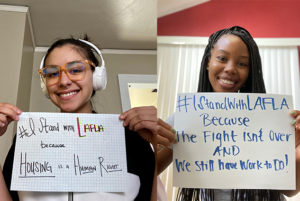 #I Stand with LAFLA
because
HOUSING is a HUMAN RIGHT
#IStandWith LAFLA
Because
The Fight Isnt Over
AND
We Still have Work to Do!